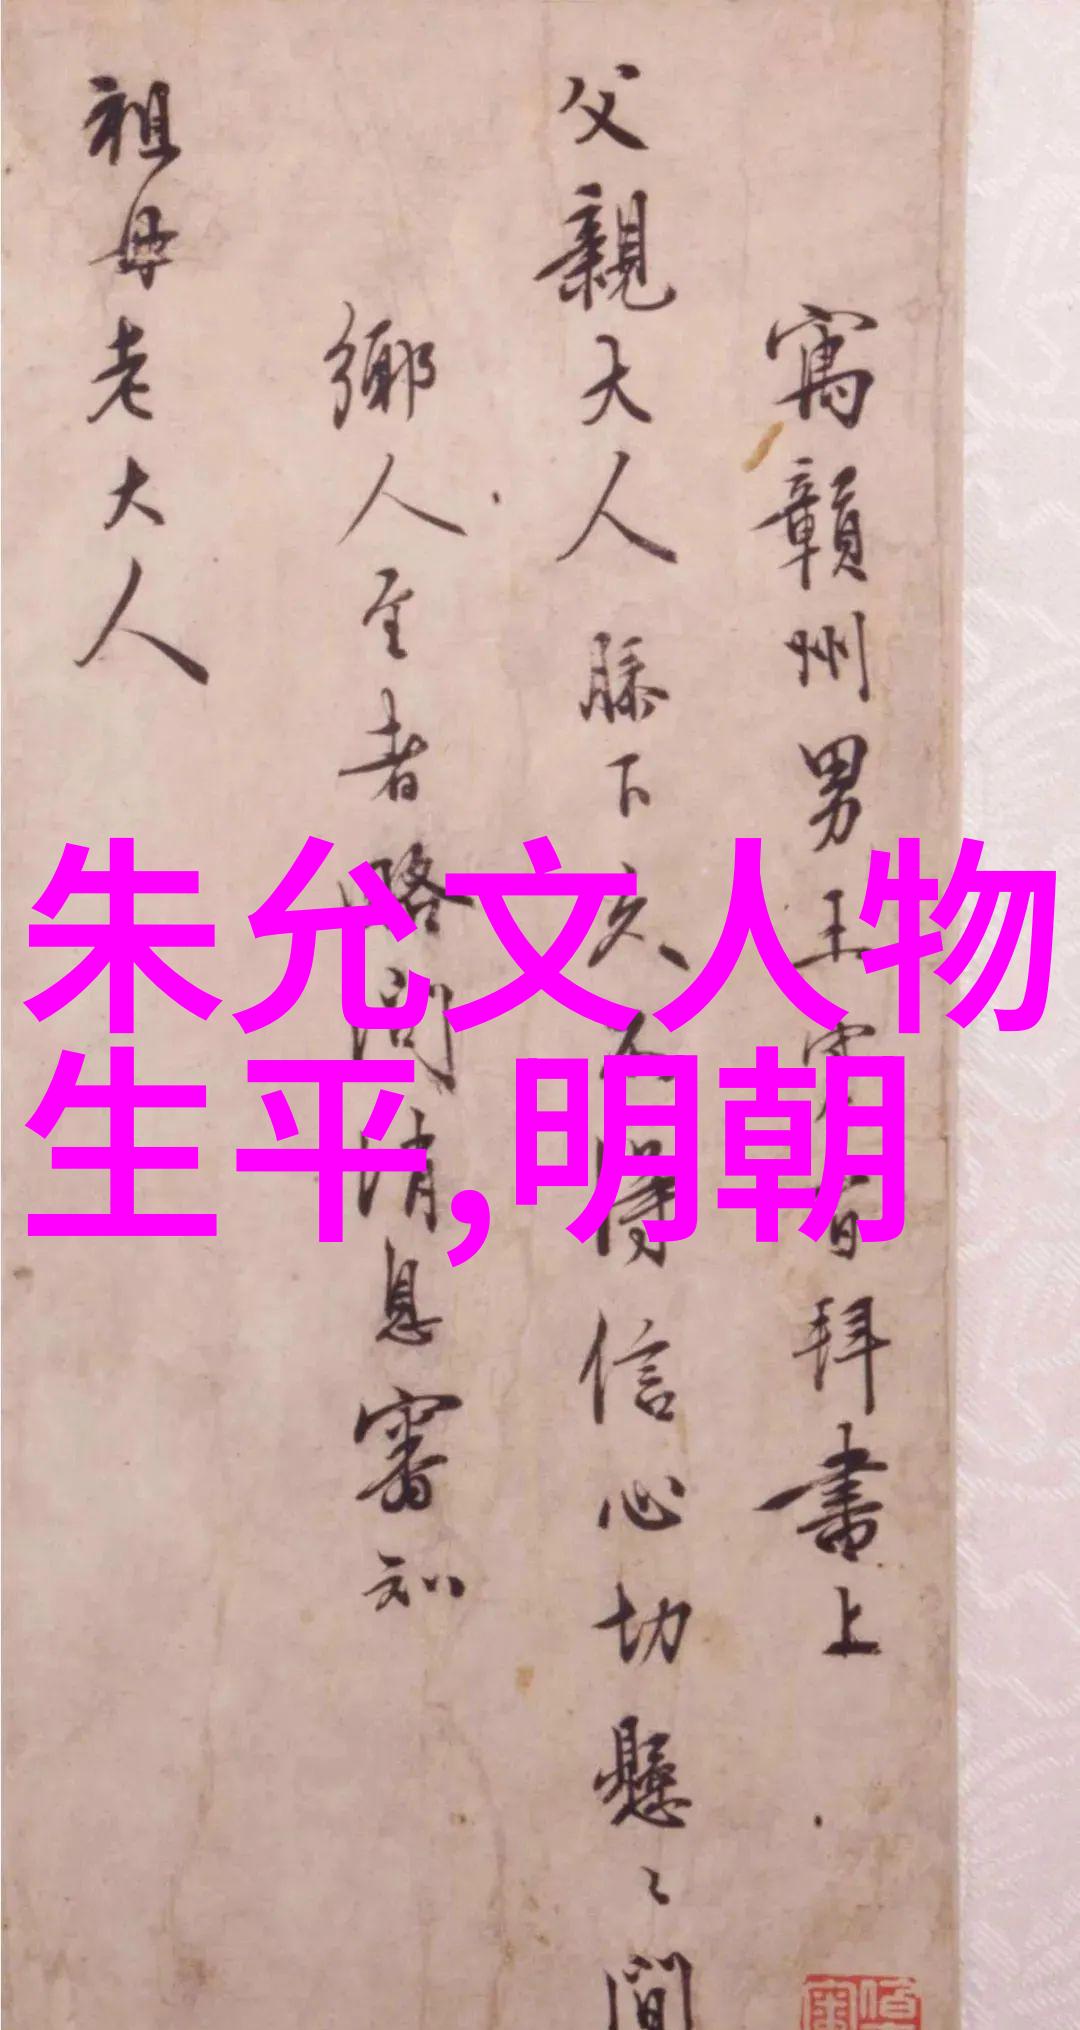 寓贛州男王守仁百拜書上
父親大人膝下久不得信心切懸〻間
鄉人至者略問消息審知
祖母老大人
朱允文人物
生平,明朝